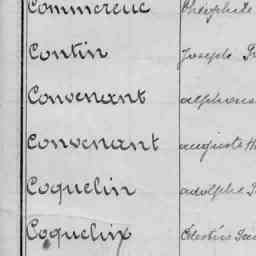 Commereuc Théophile
Contin Joseph
Convenant alphons
Convenant auguste
Coquelin adolphe
Coquelin Célestin